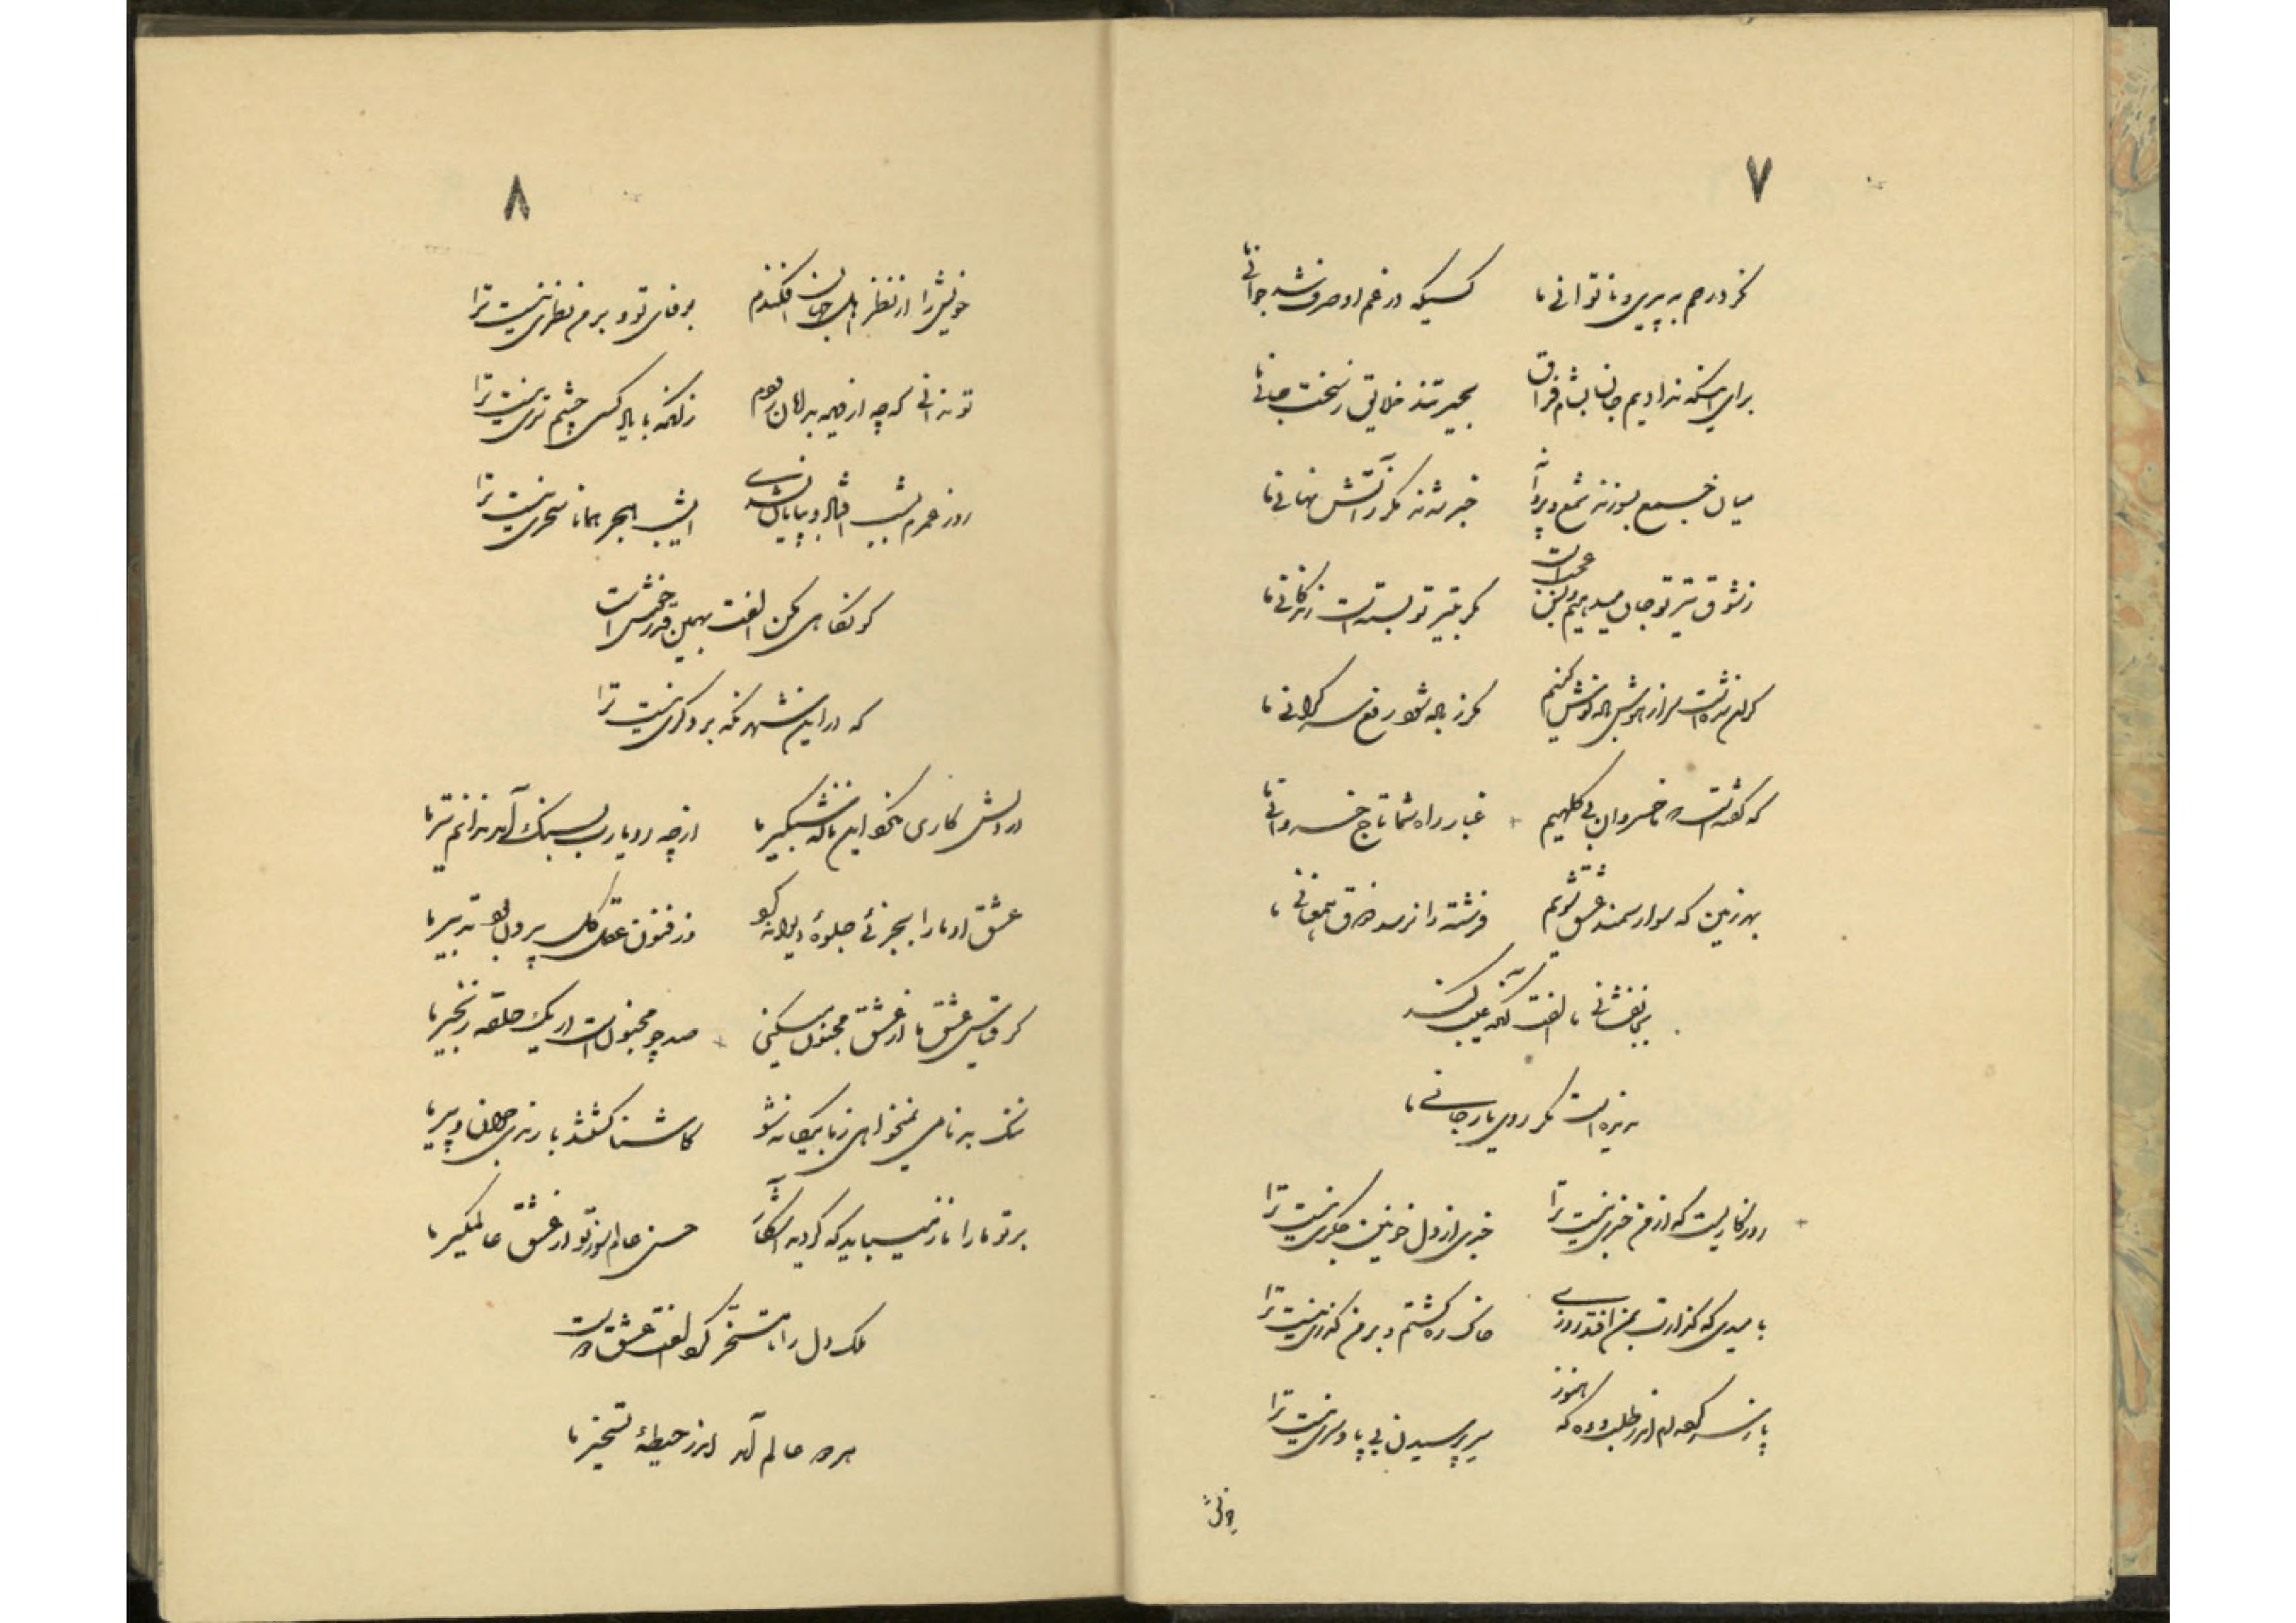 ۷
نکرد رحم به پیری و ناتوانی ما کسیکه در غم او صرف شد جوانی ما
برای اینکه ندادیم جان بشام فراق بحیرتند خلایق ز سخت جانی ما
میان جمع بسوزند شمع و پروانه خبر شدند مگر ز آتش نهانی ما
ز شوق تیر تو جان میدهیم و این عجب است مگر بتیر تو بسته است زندگانی ما
گران شده است سر از هوش باده نوش کنیم مگر ز باده شود رفع سر گرانی ما
که گفته است که ما خسروان بی کلهیم غبار راه شما تاج خسروانی ما
بهر زمین که سوار سمند عشق شویم فرشته را نرسد ذوق همعنانی ما
بجانفشانی ما الفت آنکه عیب کند
ندیده است مگر روی یار جانی ما
روزگاریست که از من خبری نیست ترا خبری از دل خونین جگری نیست ترا
بامیدی که گذارت بمن افتد روزی خاک ره گشتم و بر من گذری نیست ترا
پا ز سر کرده ام اندر طلبت وه که هنوز سر پرسیدن بی پا و سری نیست ترا
خویش
۸
خویش را از نظر اهل جهان افکندم بوفای تو و بر من نظری نیست ترا
تو ندانی که چه از دیده بدامان دارم زانکه با یاد کسی چشم تری نیست ترا
روز عمرم بشب افتاد و بپایان نشدی ای شب هجر همانا سحری نیست ترا
گو نگاهی مکن الفت بهمین قدر خوش است
که در این شهر نگه بر دگری نیست ترا
در دلش کاری نکرد این ناله شبگیر ما از چه رو یارب بسنگ آمد ندانم تیر ما
عشق او ما را بجز نی جلوه دیوانه کو در فنون عقل کل پیر و بود تدبیر ما
گر قیاس عشق ما از عشق مجنون میکنی صد چو مجنون است در یک حلقه زنجیر ما
ننگ بدنامی نمیخواهی ز ما بیگانه شو کاشنا کشتند با رندی جوان و پیر ما
بر تو ما را ناز میباید که گردید آشکار حسن عالم سوز تو از عشق عالمگیر ما
ملک دل را تا مسخر کرد الفت عشق دوست
هر دو عالم آمد اندر حیطه تسخیر ما